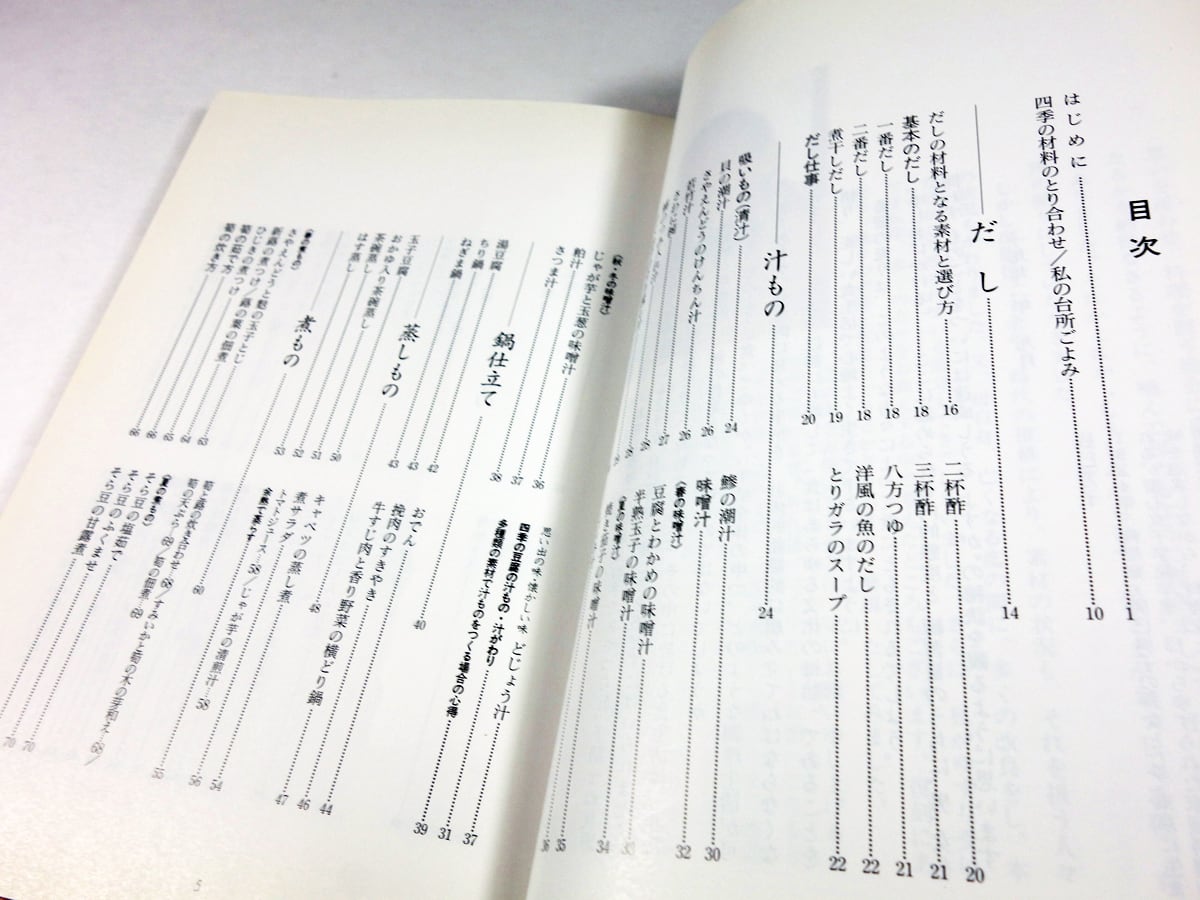 目次
はじめに 1
四季の材料のとり合わせ/私の台所ごよみ 10
だし 14
だしの材料となる素材と選び方 16
基本のだし 18
一番だし 18
二番だし 18
煮干しだし 19
だし仕事 20
二杯酢 20
三杯酢 21
八方つゆ 21
洋風の魚のだし 22
とりガラのスープ 22
汁もの 24
吸いもの(清汁) 24
貝の潮汁 26
さやえんどうのけんちん汁 26
若竹汁 27
鯵の潮汁 30
味噌汁 32
〈春の味噌汁〉
豆腐とわかめの味噌汁 33
半熟玉子の味噌汁 34
〈夏の味噌汁〉
〈秋・冬の味噌汁〉
じゃが芋と玉葱の味噌汁 36
粕汁 37
さつま汁 38
思い出の味・懐かしい味 どじょう汁 37
四季の豆腐の汁もの・汁がわり 31
多種類の素材で汁ものをつくる場合の心得 39
鍋仕立て 40
湯豆腐 42
ちり鍋 43
ねぎま鍋 43
おでん 44
挽肉のすきやき 46
牛すじ肉と香り野菜の横どり鍋 47
蒸しもの 48
玉子豆腐 50
おかゆ入り茶碗蒸し 51
茶碗蒸し 52
はす蒸し 53
キャベツの蒸し煮 54
煮サラダ 56
トマトジュース 58/じゃが芋の清煎汁 58
余熱で蒸らす 55
煮もの 60
〈春の煮もの〉
さやえんどうと麩の玉子とじ 63
新蕗の煮つけ 64
ひじきの煮つけ/蕗の葉の佃煮 65
筍の茹で方 66
筍の炊き方 66
筍と蕗の炊き合わせ 68/すみいかと筍の木の芽和え 68/
筍の天ぷら 69/筍の佃煮 69
〈夏の煮もの〉
そら豆の塩茹で 70
そら豆のふくませ 70
そら豆の甘露煮
5